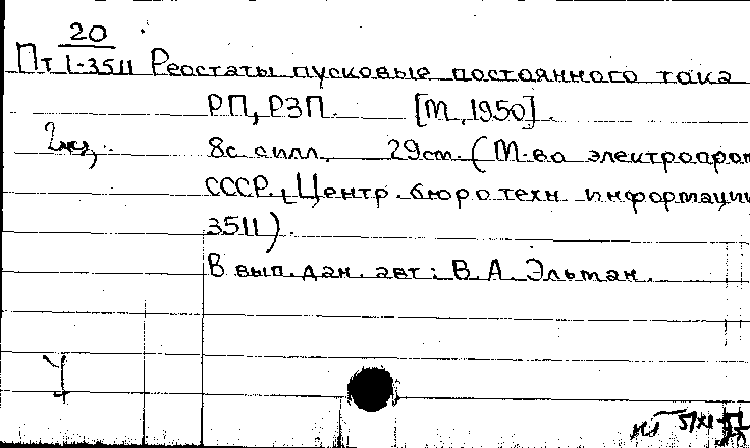 20
Пт I-3511 Реостаты пусковые постоянного тока
РП, РЗП. [М., 1950].
2экз. 8с. с илл. 29см. (М-во электропром
СССР. Центр. бюро техн. информации
3511).
В вып. дан. авт: В. А. Эльтан.
У